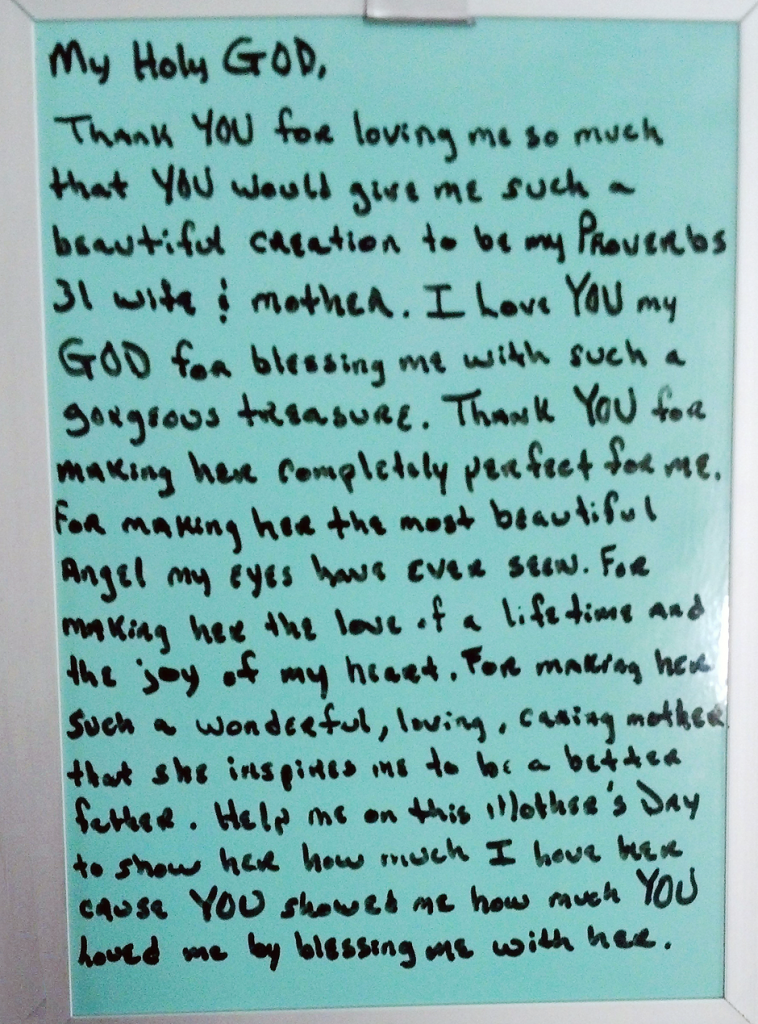 My Holy GOD,
Thank YOU for loving me so much
that YOU would give me such a
beautiful creation to be my Proverbs
31 wife & mother. I Love YOU my
GOD for blessing me with such a
gorgeous treasure. Thank YOU for
making her completely perfect for me.
For making her the most beautiful
Angel my eyes have ever seen. For
making her the love of a lifetime and
the joy of my heart. For making her
such a wonderful, loving, caring mother
that she inspires me to be a better
father. Help me on this Mother's Day
to show her how much I love her
cause YOU showed me how much YOU
loved me by blessing me with her.